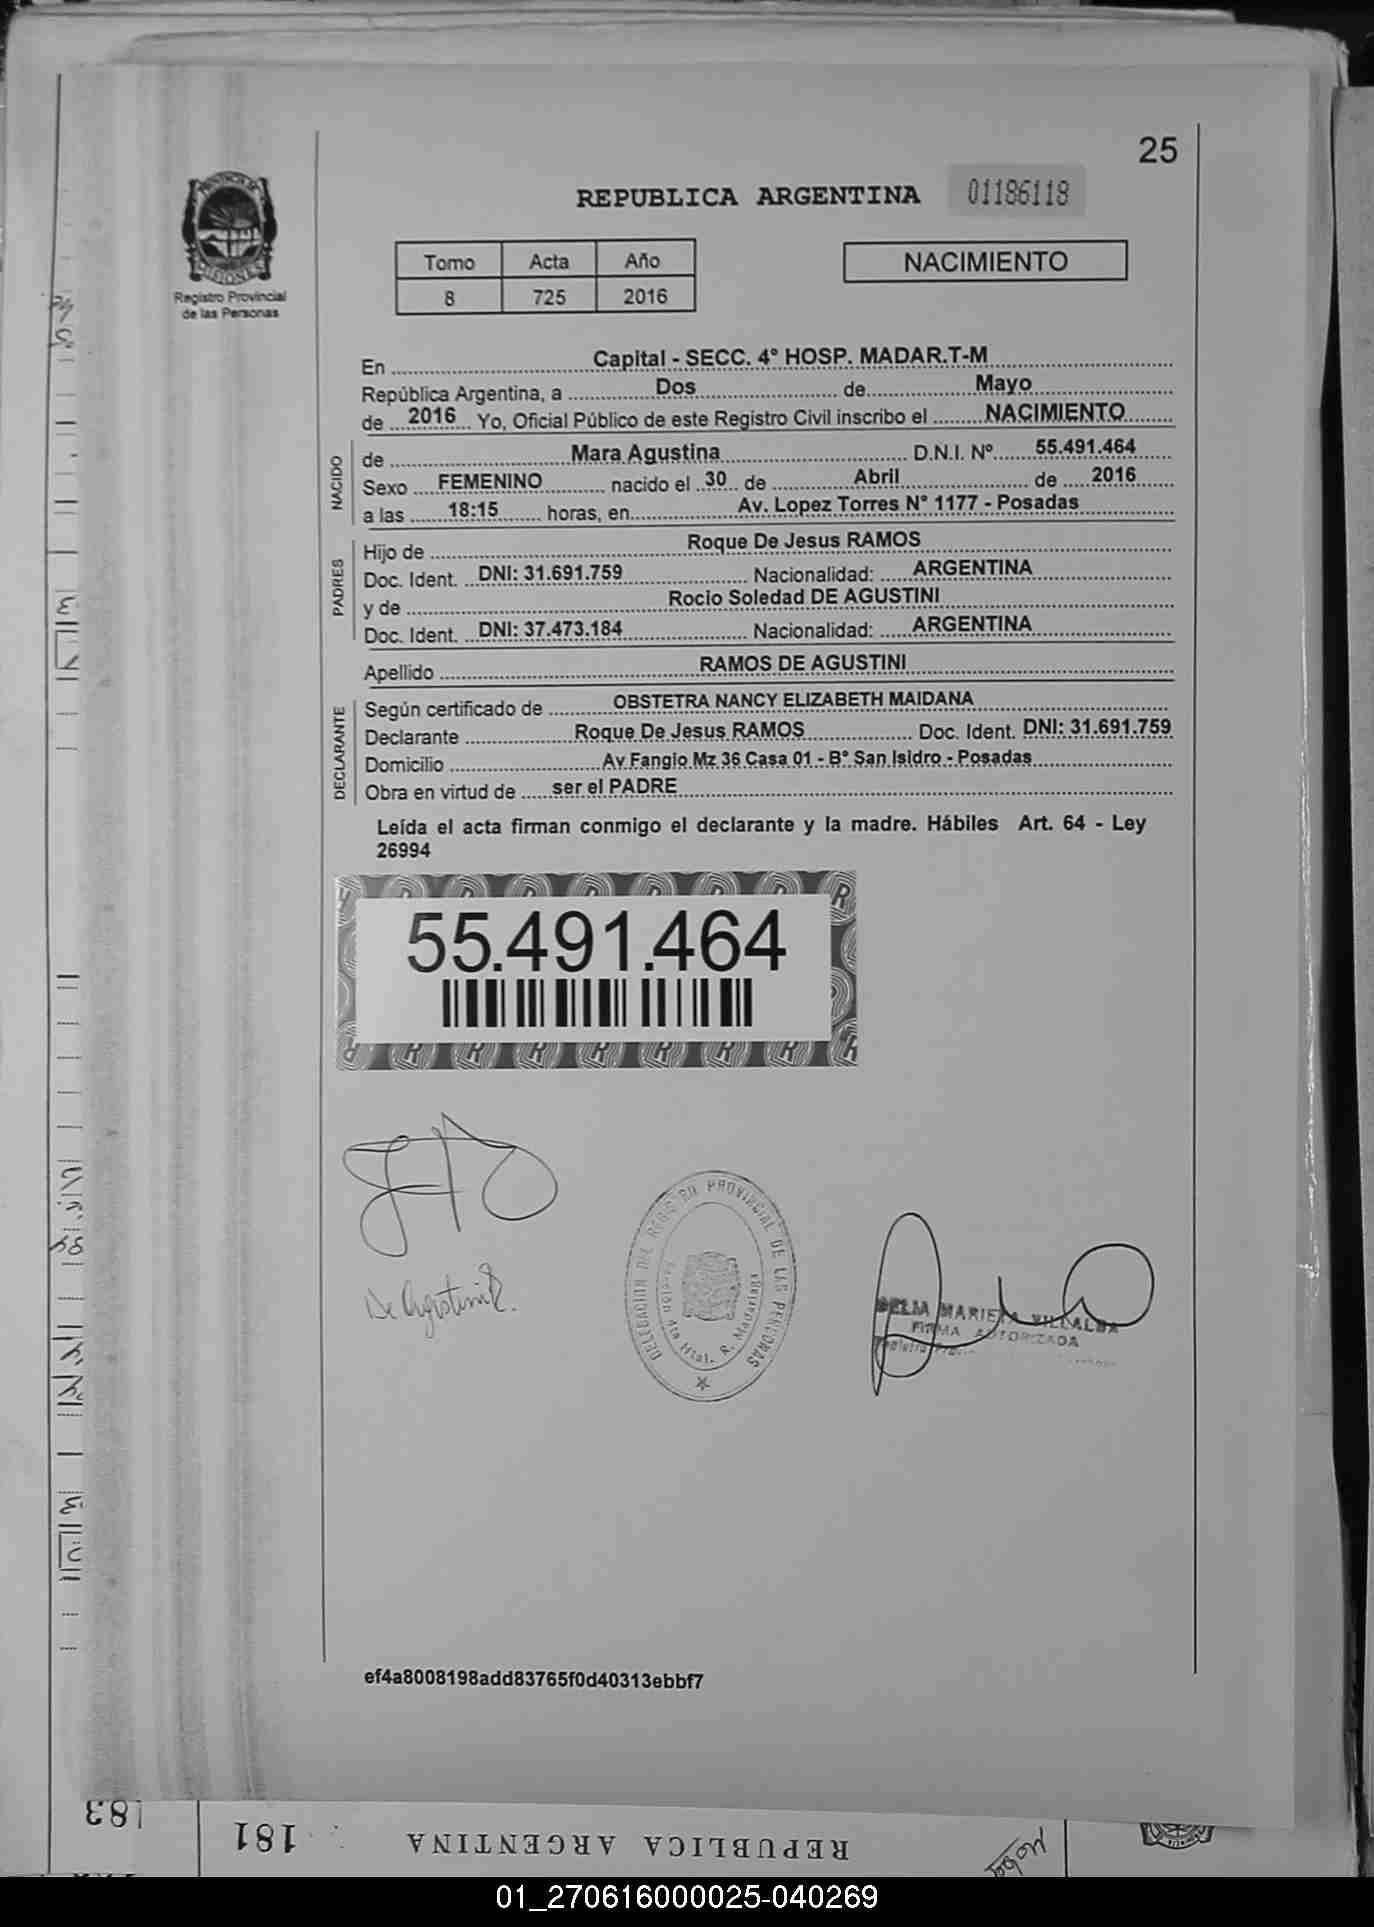 25
REPUBLICA ARGENTINA 01186118
Registro Provincial
de las Personas
Tomo Acta Año
8 725 2016
NACIMIENTO
En Capital - SECC. 4° HOSP. MADAR.T-M
República Argentina, a Dos de Mayo
de 2016 Yo, Oficial Público de este Registro Civil inscribo el NACIMIENTO
NACIDO
de Mara Agustina D.N.I. Nº 55.491.464
Sexo FEMENINO nacido el 30 de Abril de 2016
a las 18:15 horas, en Av. Lopez Torres N° 1177 - Posadas
PADRES
Hijo de Roque De Jesus RAMOS
Doc. Ident. DNI: 31.691.759 Nacionalidad: ARGENTINA
y de Rocio Soledad DE AGUSTINI
Doc. Ident. DNI: 37.473.184 Nacionalidad: ARGENTINA
Apellido RAMOS DE AGUSTINI
DECLARANTE
Según certificado de OBSTETRA NANCY ELIZABETH MAIDANA
Declarante Roque De Jesus RAMOS Doc. Ident. DNI: 31.691.759
Domicilio Av Fangio Mz 36 Casa 01 - B° San Isidro - Posadas
Obra en virtud de ser el PADRE
Leída el acta firman conmigo el declarante y la madre. Hábiles Art. 64 - Ley
26994
55.491.464
De Agustini R.
DELEGACION DEL REGISTRO PROVINCIAL DE LAS PERSONAS
4ta Htal. R. Madariaga
DELIA MARIETA VILLALBA
FIRMA AUTORIZADA
ef4a8008198add83765f0d40313ebbf7
183
181
REPUBLICA ARGENTINA
01_270616000025-040269